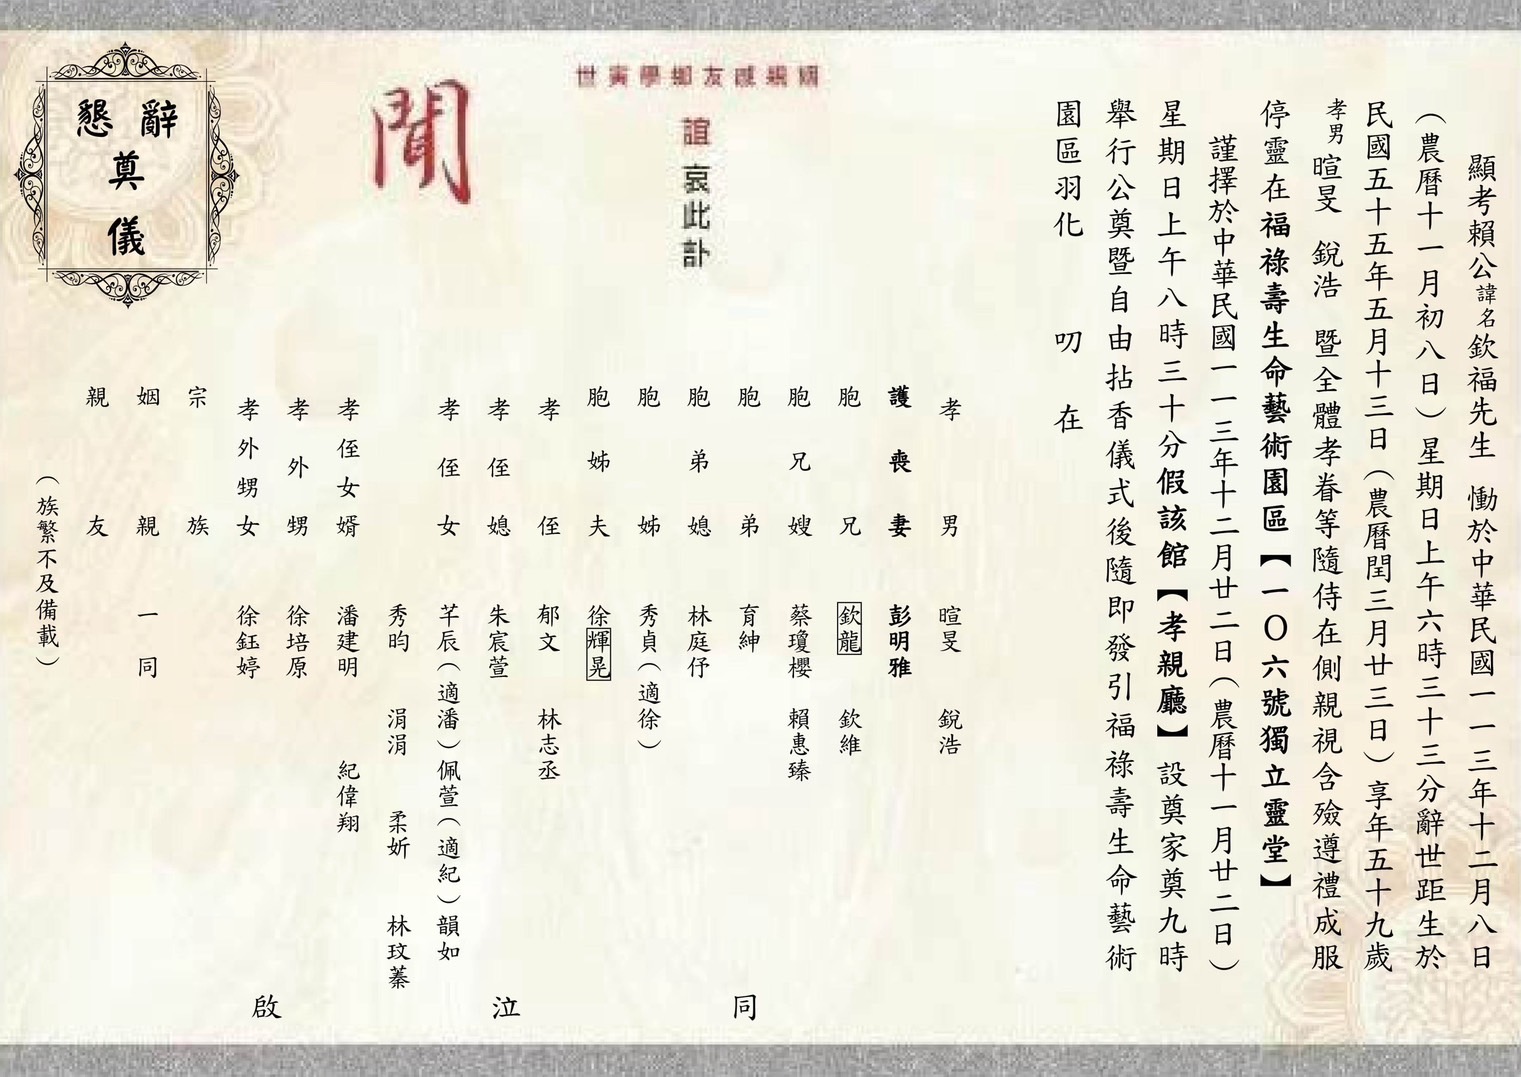 顯考賴公諱名欽福先生 慟於中華民國一一三年十二月八日
（農曆十一月初八日）星期日上午六時三十三分辭世距生於
民國五十五年五月十三日（農曆閏三月廿三日）享年五十九歲
孝男 暄旻 銳浩 暨全體孝眷等隨侍在側親視含殮遵禮成服
停靈在福祿壽生命藝術園區【一〇六號獨立靈堂】
謹擇於中華民國一一三年十二月廿二日（農曆十一月廿二日）
星期日上午八時三十分假該館【孝親廳】設奠家奠九時
舉行公奠暨自由拈香儀式後隨即發引福祿壽生命藝術
園區羽化 叨在
世寅學鄉友戚親姻
誼 哀此訃
聞
懇辭
奠
儀
孝男 暄旻 銳浩
護喪妻 彭明雅
胞兄 欽龍 欽維
胞兄嫂 蔡瓊櫻 賴惠臻
胞弟 育紳
胞弟媳 林庭伃
胞姊 秀貞（適徐）
胞姊夫 徐輝晃
孝侄 郁文 林志丞
孝侄媳 朱宸萱
孝侄女 芊辰（適潘）佩萱（適紀）韻如
秀昀 涓涓 柔妡 林玟蓁
孝侄女婿 潘建明 紀偉翔
孝外甥 徐培原
孝外甥女 徐鈺婷
宗族
姻親 一同
親友
（族繁不及備載）
同 泣 啟